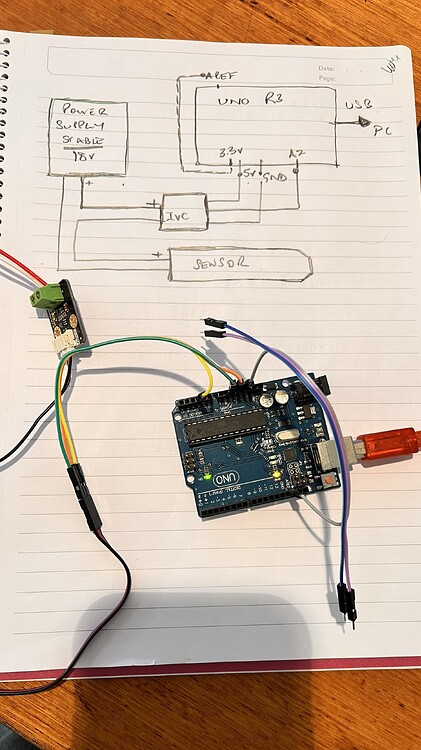 Date:
Page:
AREF
UNO R3
USB
PC
POWER
SUPPLY
STABLE
18V
+
3.3V
5V
GND
A2
+
IVC
+
SENSOR
UNO